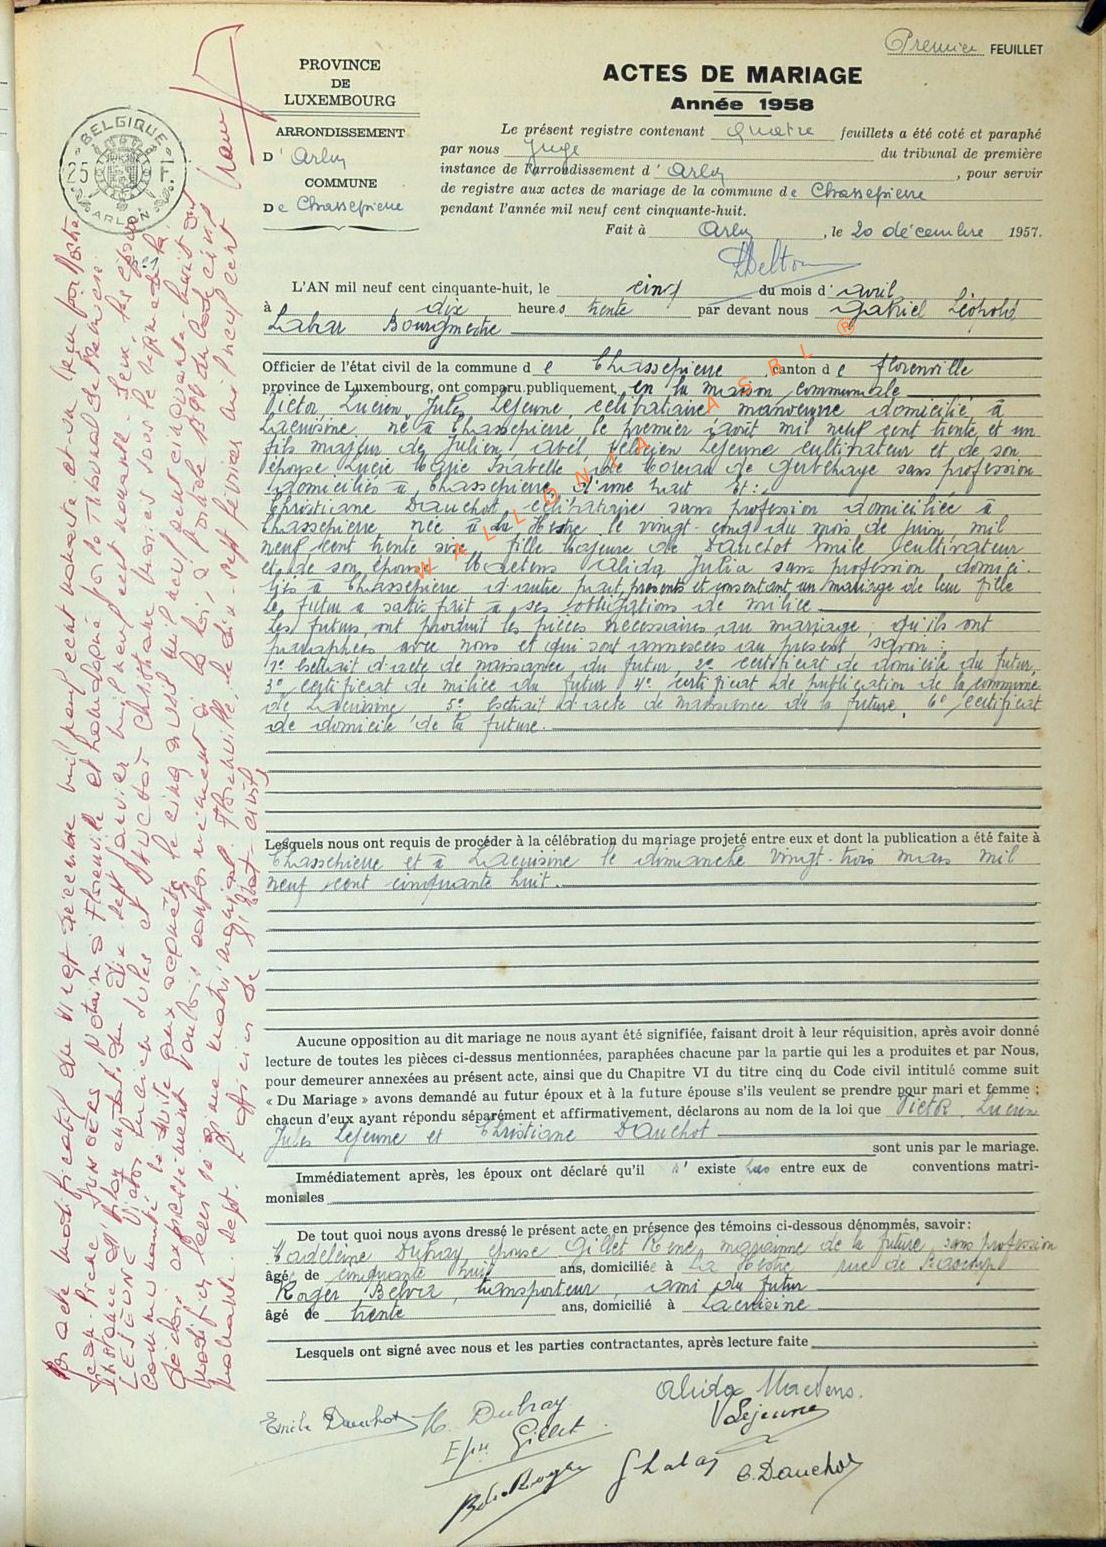 Premier FEUILLET
PROVINCE
DE
LUXEMBOURG
ARRONDISSEMENT
D' Arlon
COMMUNE
De Chassepierre
BELGIQUE
25 F.
ARLON
ACTES DE MARIAGE
Année 1958
Le présent registre contenant quatre feuillets a été coté et paraphé
par nous Juge du tribunal de première
instance de l'arrondissement d' Arlon, pour servir
de registre aux actes de mariage de la commune de Chassepierre
pendant l'année mil neuf cent cinquante-huit.
Fait à Arlon, le 20 décembre 1957.
L'AN mil neuf cent cinquante-huit, le cinq du mois d' avril
à dix heures trente par devant nous Gabriel Léopold
Labar Bourgmestre
Officier de l'état civil de la commune d e Chassepierre canton d e Florenville
province de Luxembourg, ont comparu publiquement en la maison communale
Victor, Lucien, Jules Lejeune, célibataire manoeuvre domicilié à
Lacuisine né à Chassepierre le premier août mil neuf cent trente et un
fils majeur de Julien, Abel, Lejeune cultivateur et de son
épouse Lucie Marie Isabelle sans profession
domiciliés à Chassepierre, d'une part Et :
Christiane Dauchot, célibataire sans profession domiciliée à
Chassepierre née à La Hestre le vingt-cinq du mois de juin mil
neuf cent trente six, fille majeure de Dauchot Emile cultivateur
et de son épouse Martens Alida Julia sans profession, domici-
liés à Chassepierre d'autre part, présents et consentant au mariage de leur fille
Le futur a satisfait à ses obligations de milice
Les futurs ont produit les pièces nécessaires au mariage qu'ils ont
paraphées avec nous et qui sont annexées au présent, savoir :
1° Extrait d'acte de naissance du futur, 2° certificat de domicile du futur,
3° certificat de milice du futur 4° certificat de publication de la commune
de Lacuisine 5° Extrait d'acte de naissance de la future, 6° certificat
de domicile de la future.
WALLONIA ASBL ®
Lesquels nous ont requis de procéder à la célébration du mariage projeté entre eux et dont la publication a été faite à
Chassepierre et à Lacuisine le dimanche vingt-trois mars mil
neuf cent cinquante huit.
Aucune opposition au dit mariage ne nous ayant été signifiée, faisant droit à leur réquisition, après avoir donné
lecture de toutes les pièces ci-dessus mentionnées, paraphées chacune par la partie qui les a produites et par Nous,
pour demeurer annexées au présent acte, ainsi que du Chapitre VI du titre cinq du Code civil intitulé comme suit
« Du Mariage » avons demandé au futur époux et à la future épouse s'ils veulent se prendre pour mari et femme ;
chacun d'eux ayant répondu séparément et affirmativement, déclarons au nom de la loi que Victor, Lucien
Jules Lejeune et Christiane Dauchot
sont unis par le mariage.
Immédiatement après, les époux ont déclaré qu'il n' existe pas entre eux de conventions matri-
moniales
De tout quoi nous avons dressé le présent acte en présence des témoins ci-dessous dénommés, savoir :
Madeleine Dubray, épouse Gillet René, marraine de la future, sans profession
âgé de cinquante huit ans, domiciliée à La Hestre, rue de
Roger transporteur, ami du futur
âgé de trente ans, domicilié à Lacuisine
Lesquels ont signé avec nous et les parties contractantes, après lecture faite
Alida Martens.
Emile Dauchot M. Dubray VLejeune
Epse Gillet
GLabar C. Dauchot
Par acte modificatif du vingt décembre mil neuf cent nonante et un reçu par Maître
Jean-Pierre Notaire à Florenville et homologué par le Tribunal de Première
Instance d'Arlon en date du dix-sept janvier mil neuf cent nonante deux, les époux
LEJEUNE Victor Lucien Jules et DAUCHOT Christiane mariés sous le régime de la
communauté
modifier leur régime matrimonial. Florenville, le dix-sept février mil neuf cent
nonante-sept. L'officier de l'état civil,